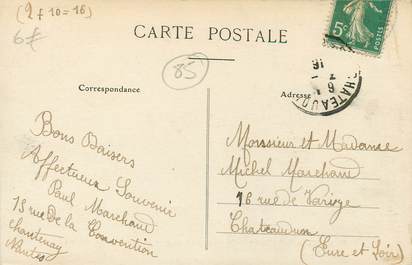 (2 f 10 = 16)
6f
CARTE POSTALE
5c
85
CHATEAUDUN
16
Correspondance
Adresse
Bons Baisers
Affectueux Souvenir
Paul Marchand
15 rue de la Convention
Chantenay
Nantes
Monsieur et Madame
Michel Marchand
16 rue de Varize
Chateaudun
(Eure et Loir)